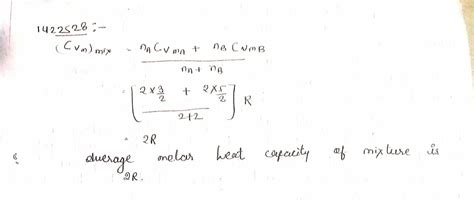 1422528 :-
(Cvm)mix = nA CvmA + nB CvmB
nA + nB
= [ 2 × 3/2 + 2 × 5/2 ] R
2+2
= 2R
average molar heat capacity of mixture is
2R.